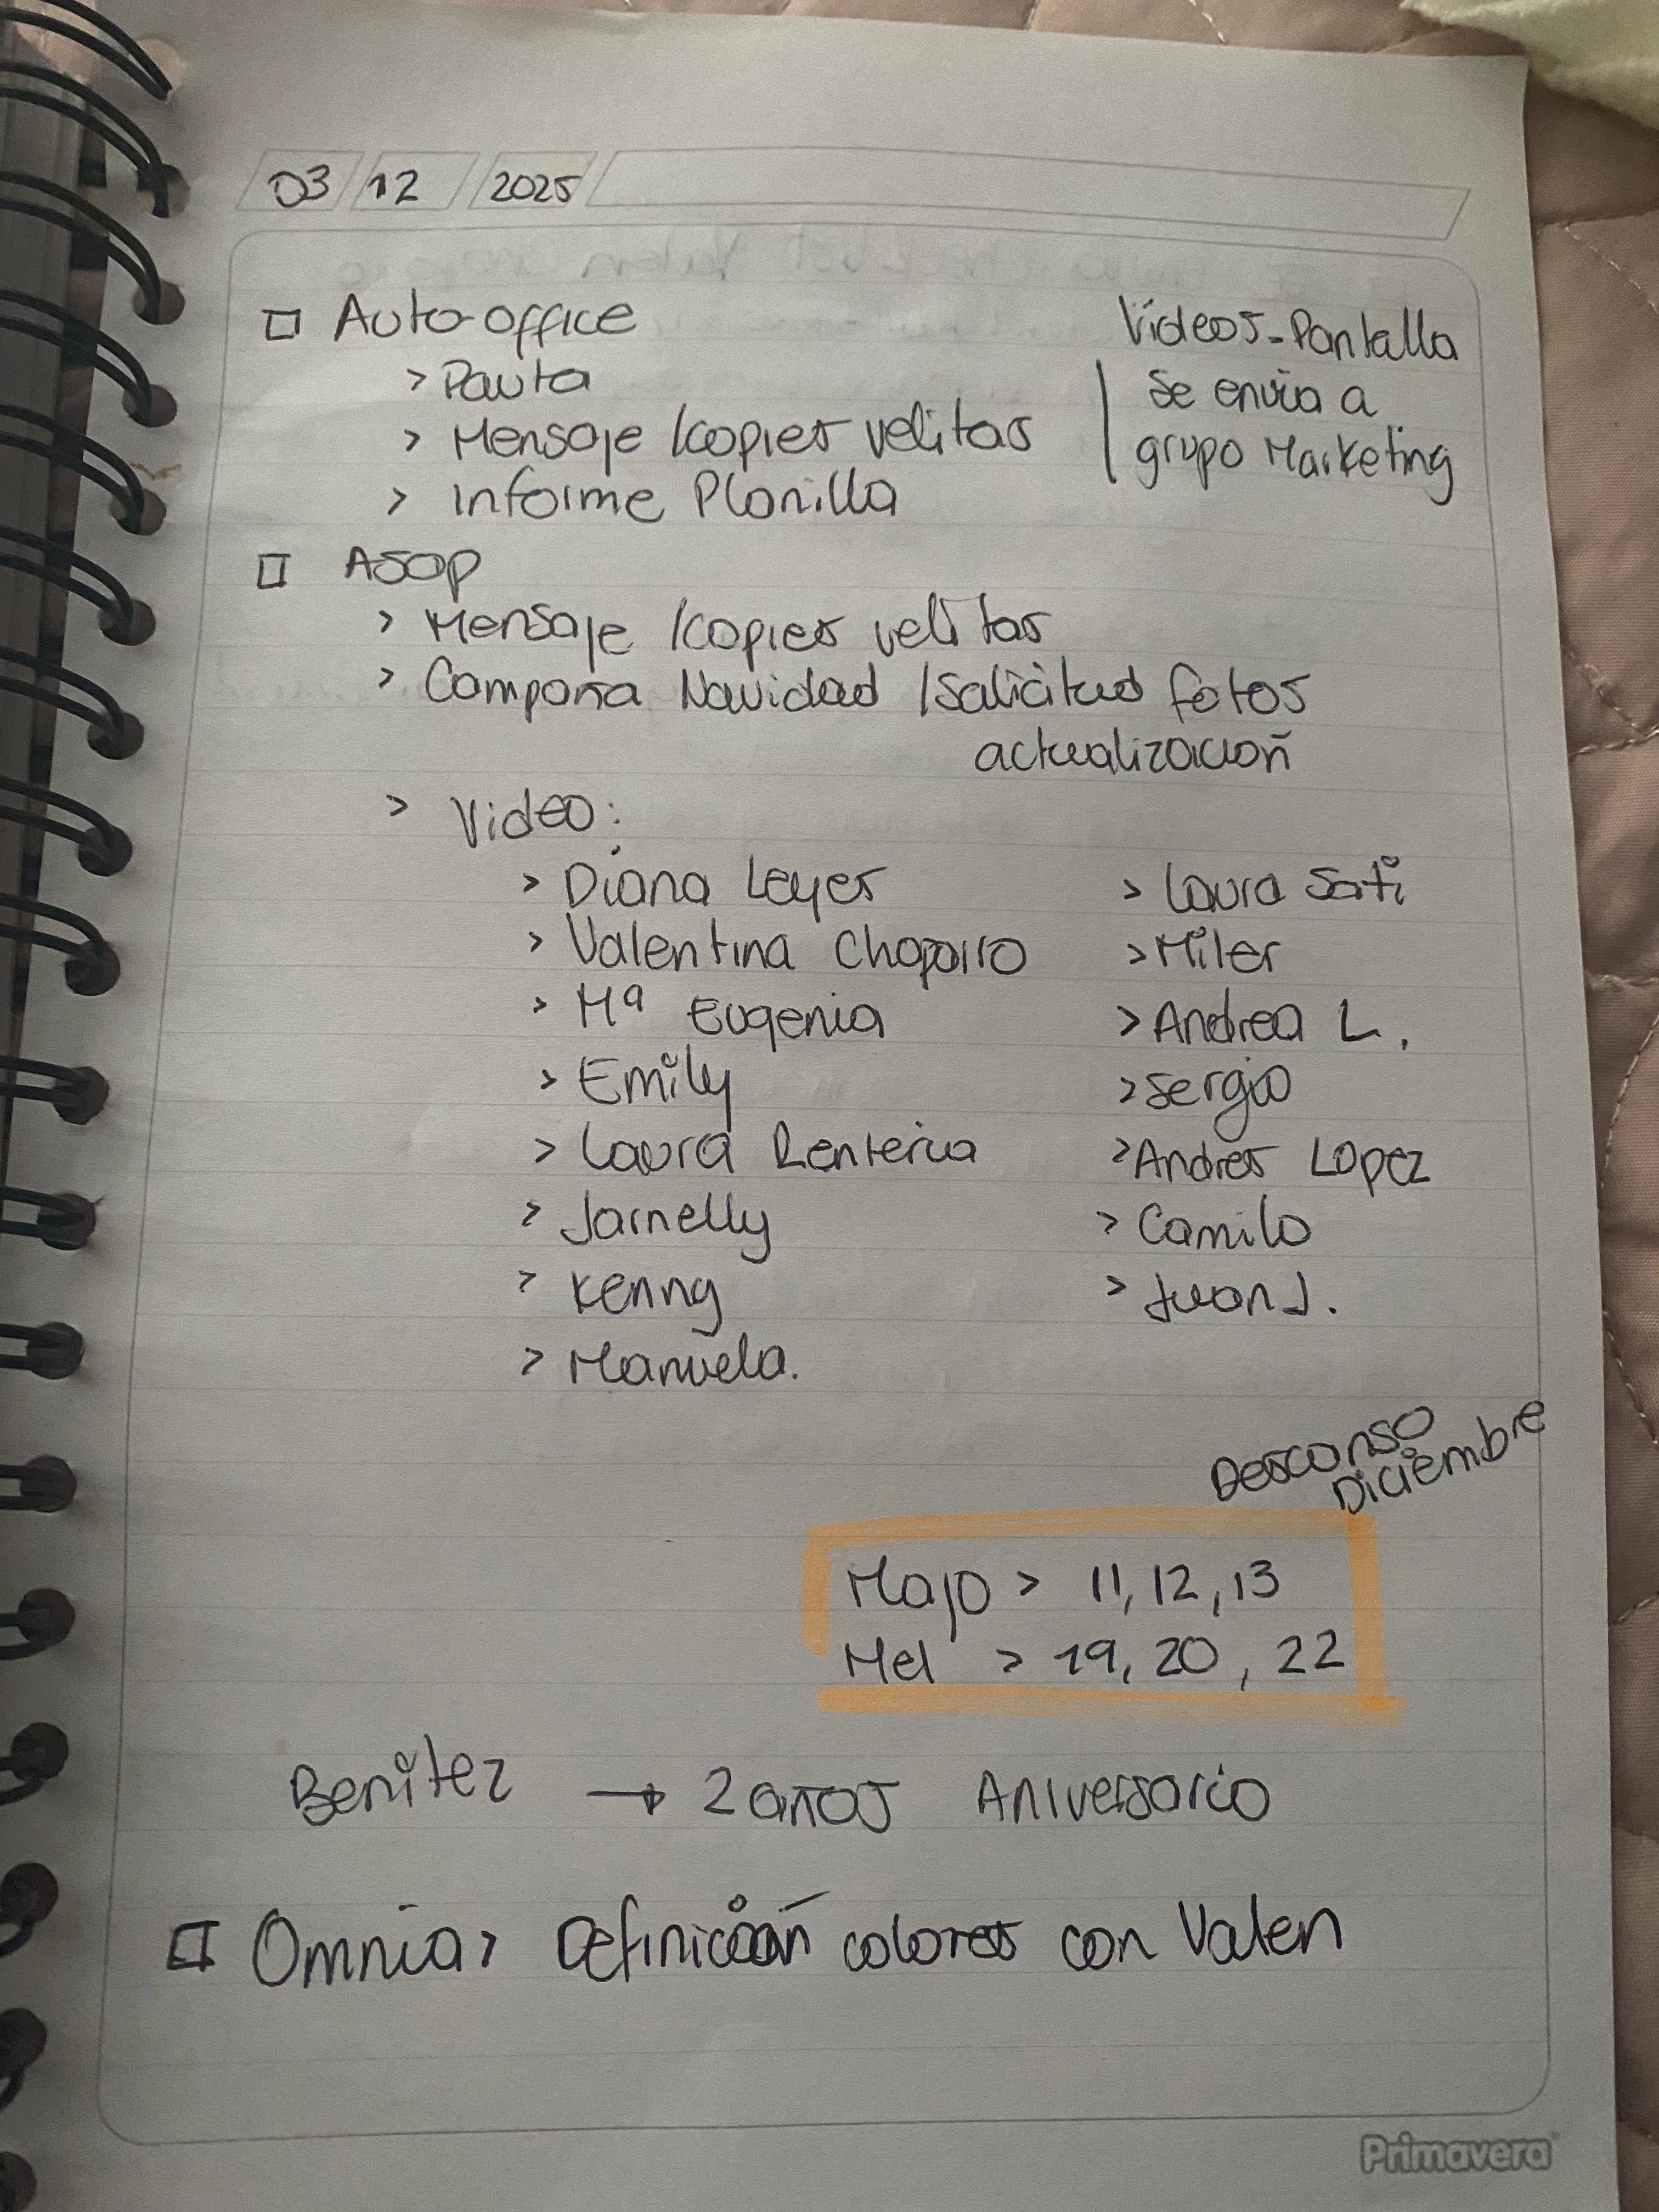 03 / 12 / 2025
□ Auto-office
> Pauta
> Mensaje / copies velitas
> Informe Planilla
Videos - Pantalla
se envia a
grupo Marketing
□ Asop
> Mensaje / copies velitas
> Campaña Navidad / Salicitud fotos
actualización
> Video:
> Diana Leyes
> Valentina Chaparro
> Mª Eugenia
> Emily
> Laura Renteria
> Jarnelly
> Kenny
> Manuela.
> Laura Sati
> Miler
> Andrea L.
> Sergio
> Andres Lopez
> Camilo
> Juan J.
Descanso
Diciembre
Majo > 11, 12, 13
Mel > 19, 20, 22
Benitez → 2 años Aniversario
□ Omnia > Definición colores con Valen
Primavera